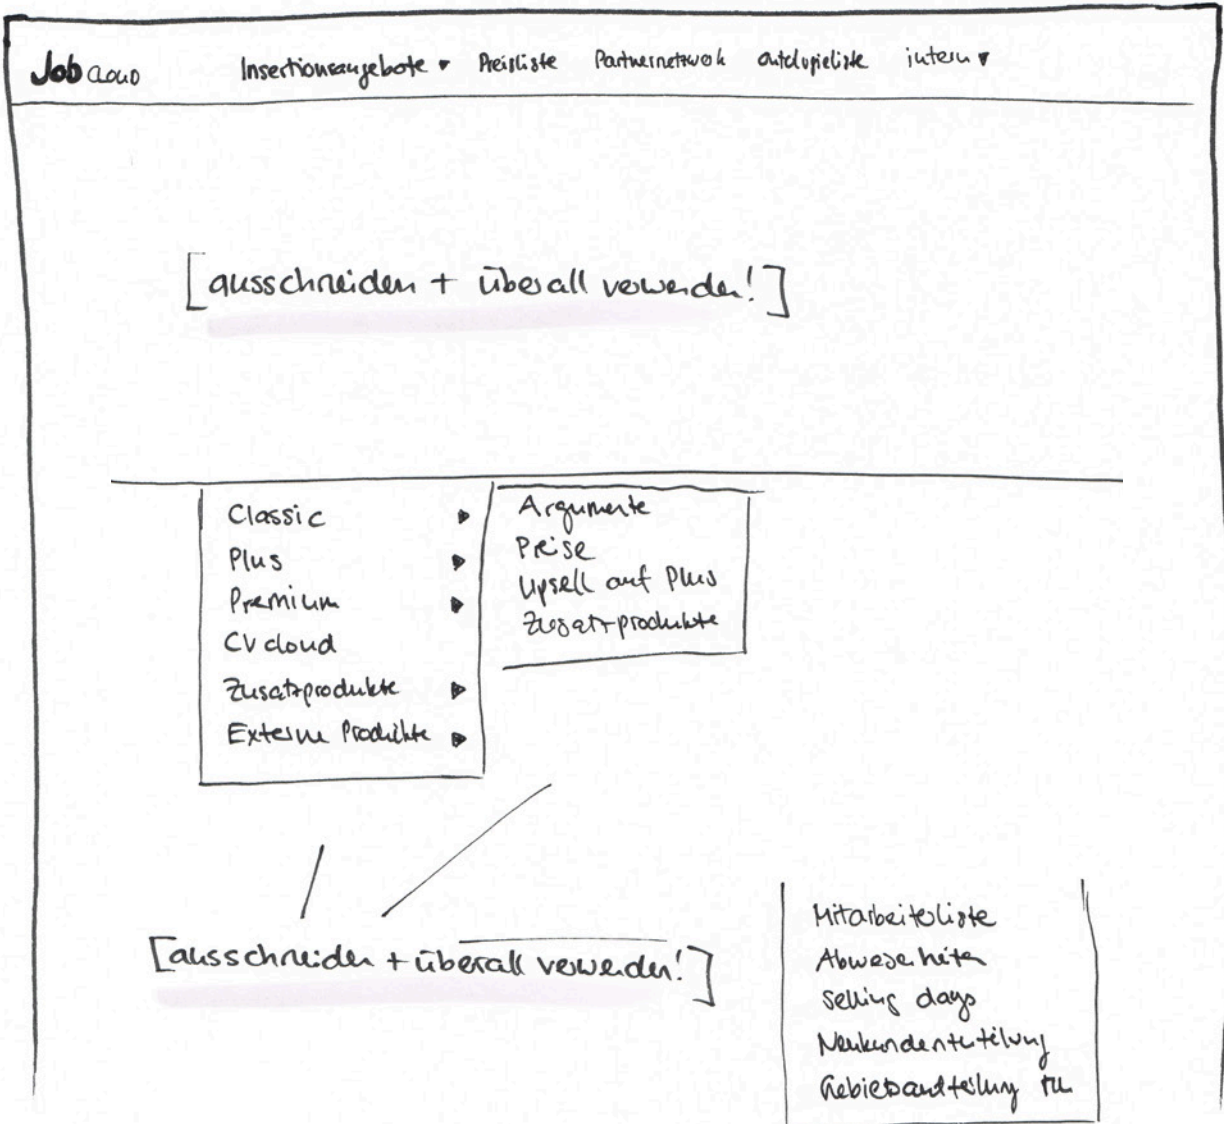 Job cloud Insertionsangebote ▾ Preisliste Partnernetzwerk intern ▾
[ausschneiden + überall verwenden!]
Classic ▸
Plus ▸
Premium ▸
CV cloud
Zusatzprodukte ▸
Externe Produkte ▸
Argumente
Preise
Upsell auf Plus
Zusatzprodukte
[ausschneiden + überall verwenden!]
Mitarbeiterliste
Abwesenheiten
Selling days
Neukundenzuteilung
Gebietsaufteilung